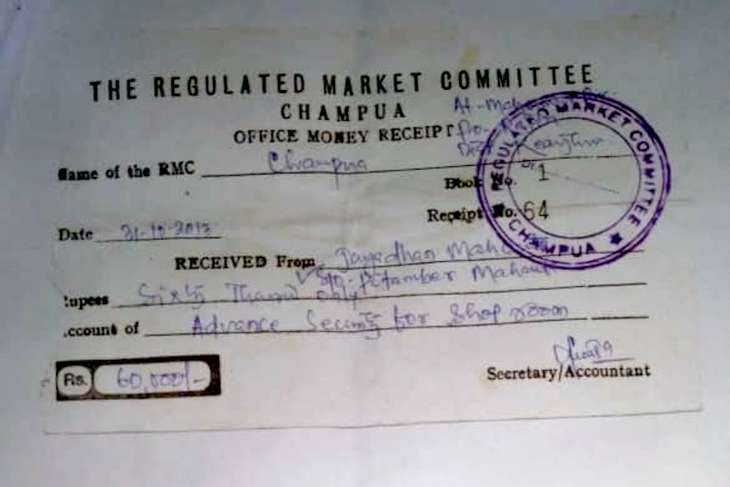 THE REGULATED MARKET COMMITTEE
CHAMPUA
OFFICE MONEY RECEIPT
At-
Po-
Dist
Name of the RMC Champua
Book No. 1
Receipt No. 64
Date 31-10-2013
RECEIVED From Jayadhan
S/o- Pitambar Mahanta
Rupees Sixty Thousand only
Account of Advance Security for Shop room
Rs. 60,000/-
Secretary/Accountant
REGULATED MARKET COMMITTEE
★ CHAMPUA ★